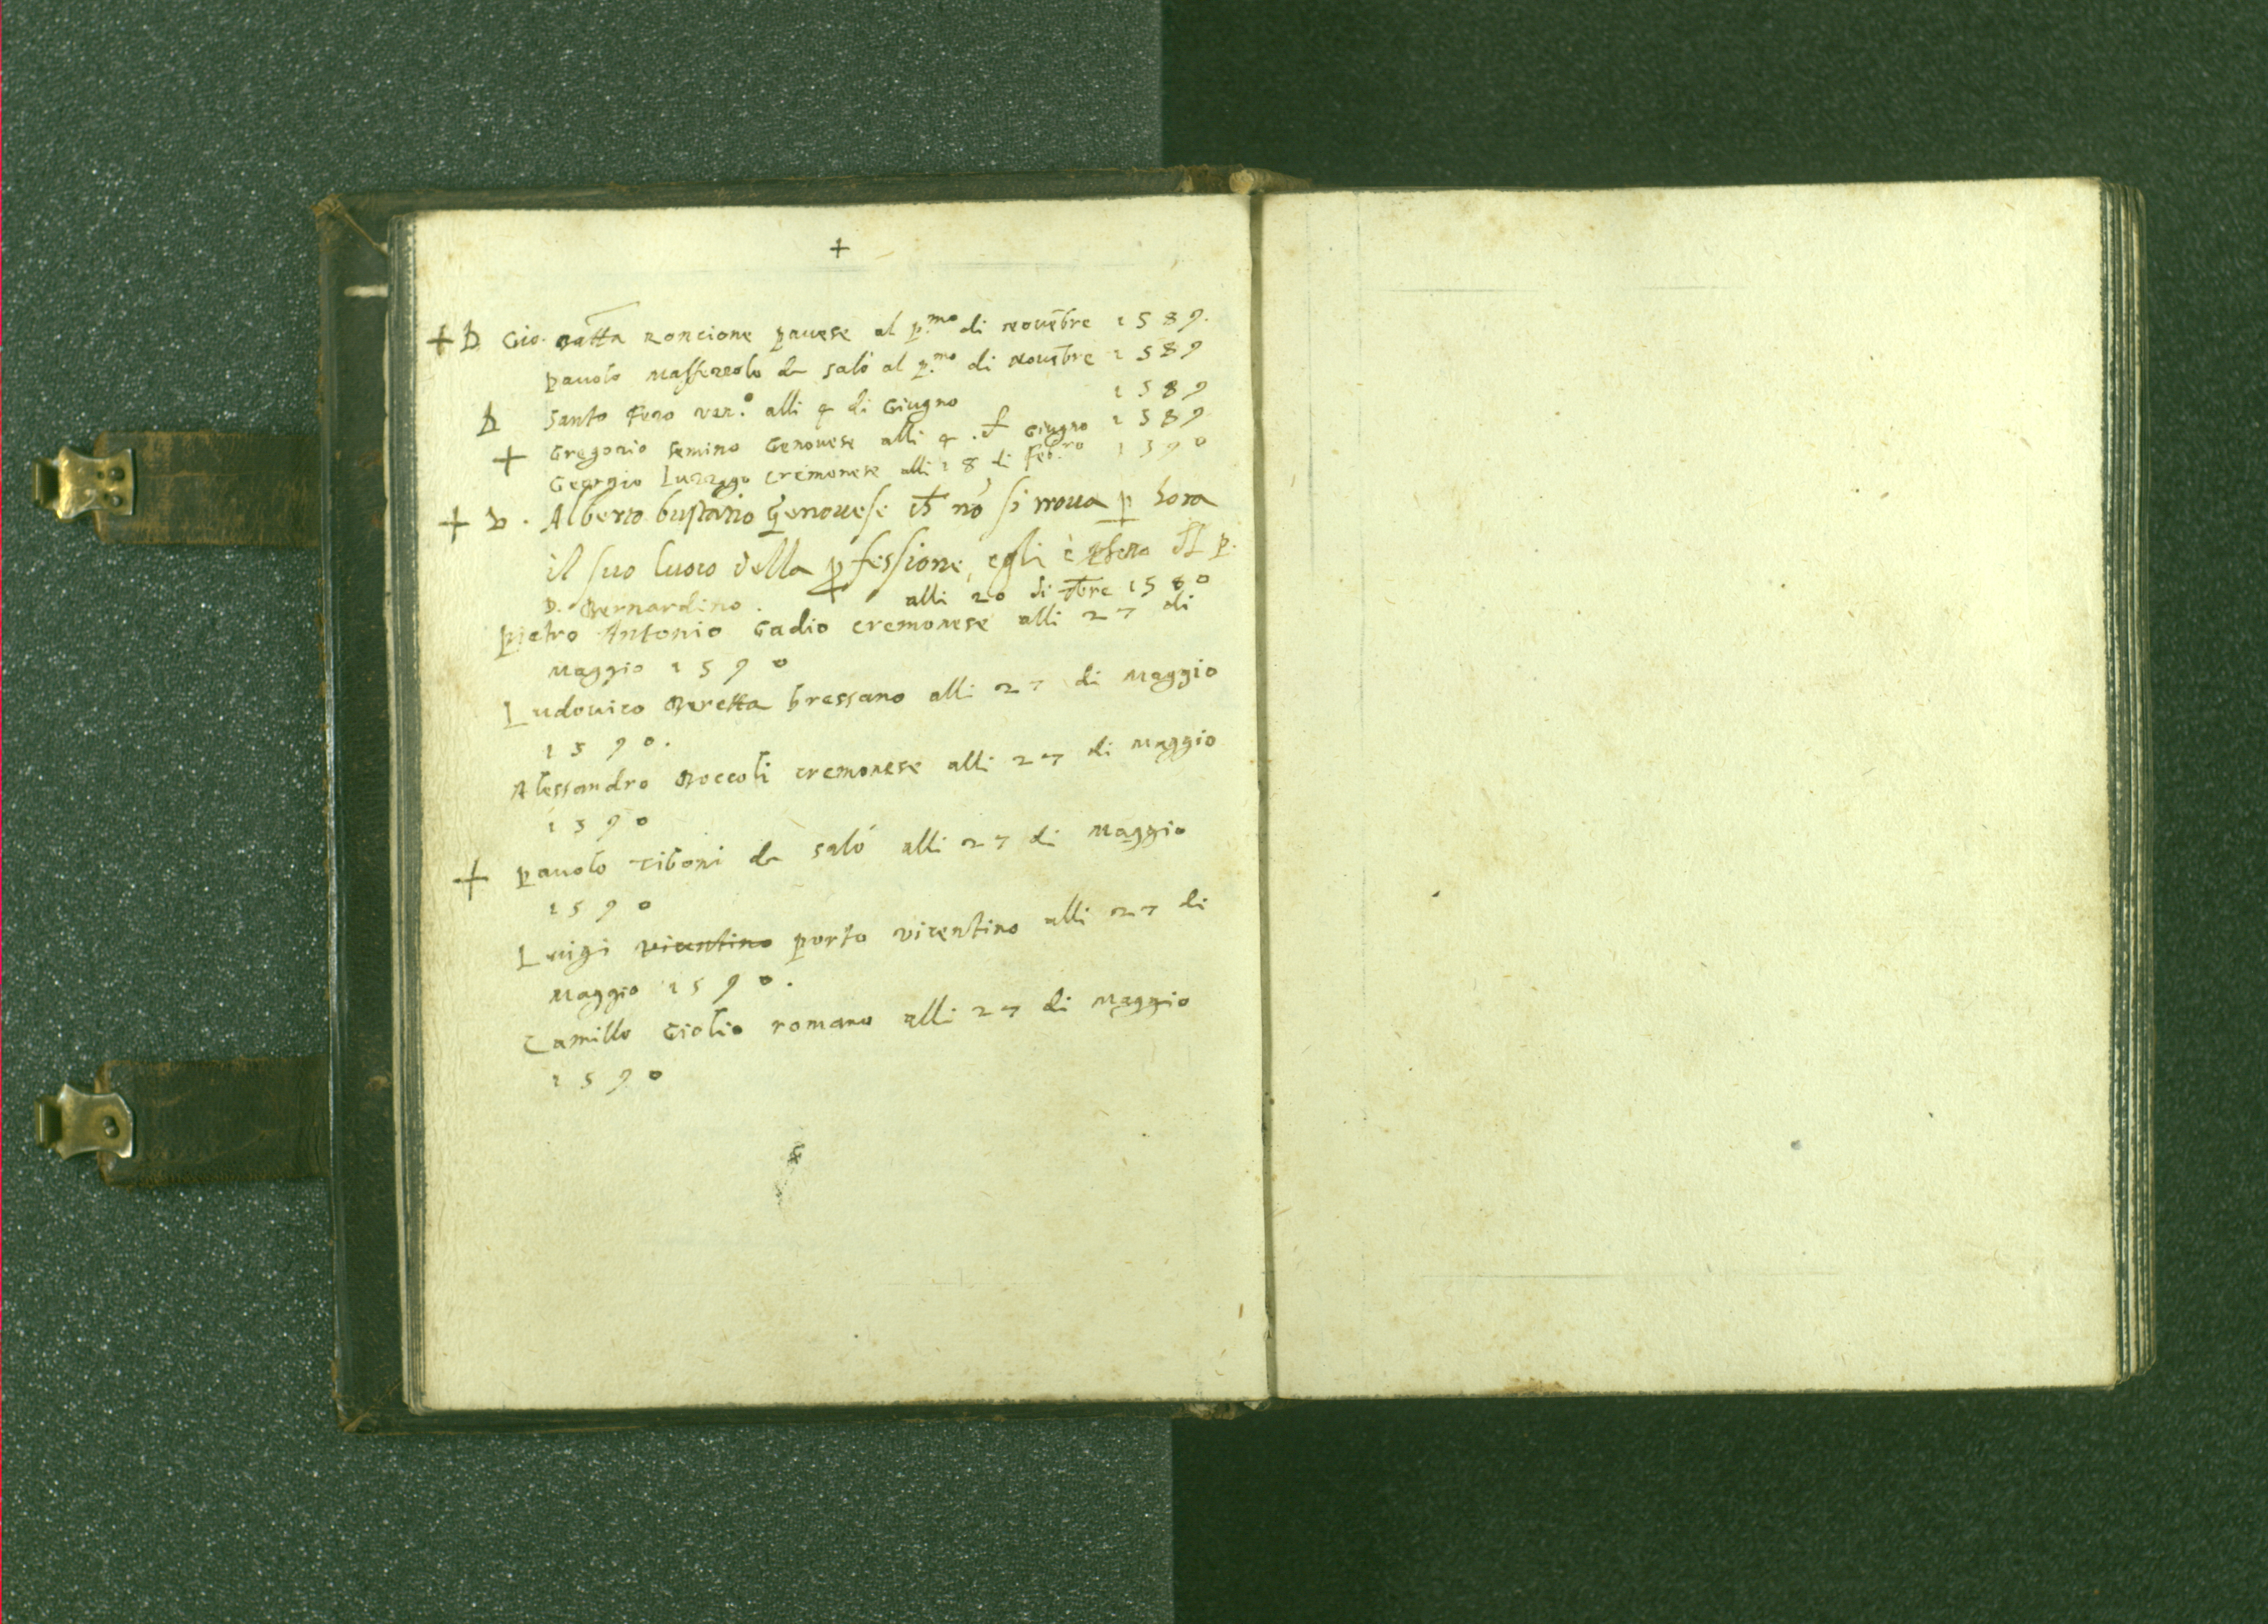 +
+ D Gio. Batta Roncione pavese al p.mo di novẽbre 1589.
pauolo Masserolo da salò al p.mo di Nouẽbre 1589
D Santo Fero ven.o alli 4 di Giugno 1589
+ Gregorio Semino Genouese alli 4 Giugno 1589.
Georgio Luzzago cremonese alli 18 di Feb.ro 1590
+ D. Alberto bustario Genouese nõ si troua p hora
il suo luoco della pfessione, egli è p.
D. Bernardino. alli 20 di 7bre 1580
Pietro Antonio Gadio cremonese alli 27 di
Maggio 1590
Ludouico Beretta bressano alli 27 di Maggio
1590.
Alessandro Boccoli cremonese alli 27 di Maggio
1590
+ pauolo Tiboni da salò alli 27 di Maggio
1590
Luigi vicentino porto vicentino alli 27 di
Maggio 1590.
Camillo Giolio romano alli 27 di Maggio
1590